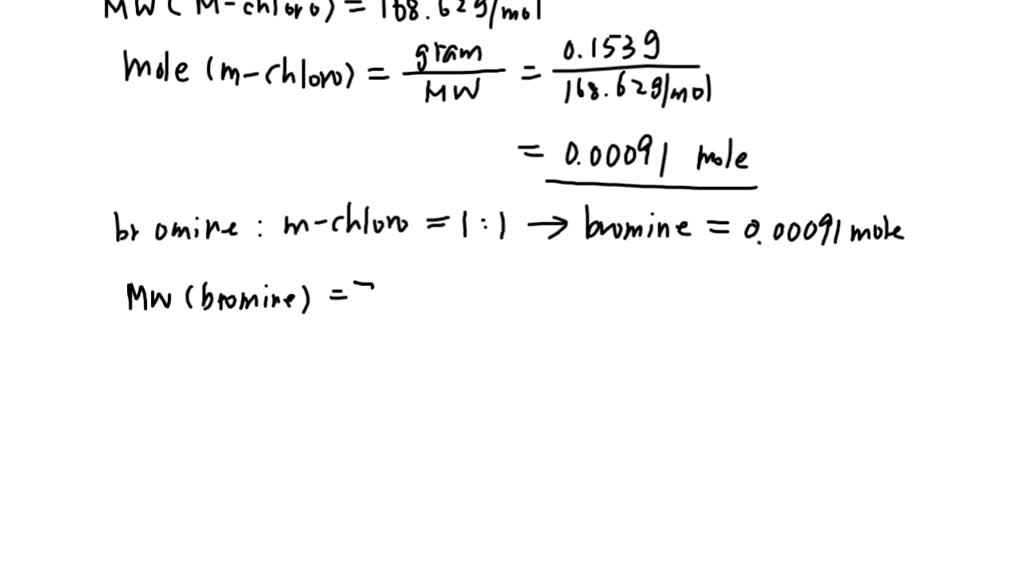 MW( M-chloro) = 168.62g/mol
mole (m-chloro) = gram/MW = 0.153g/168.62g/mol
= 0.00091 mole
bromine : m-chloro = 1 : 1 → bromine = 0.00091 mole
MW (bromine) =